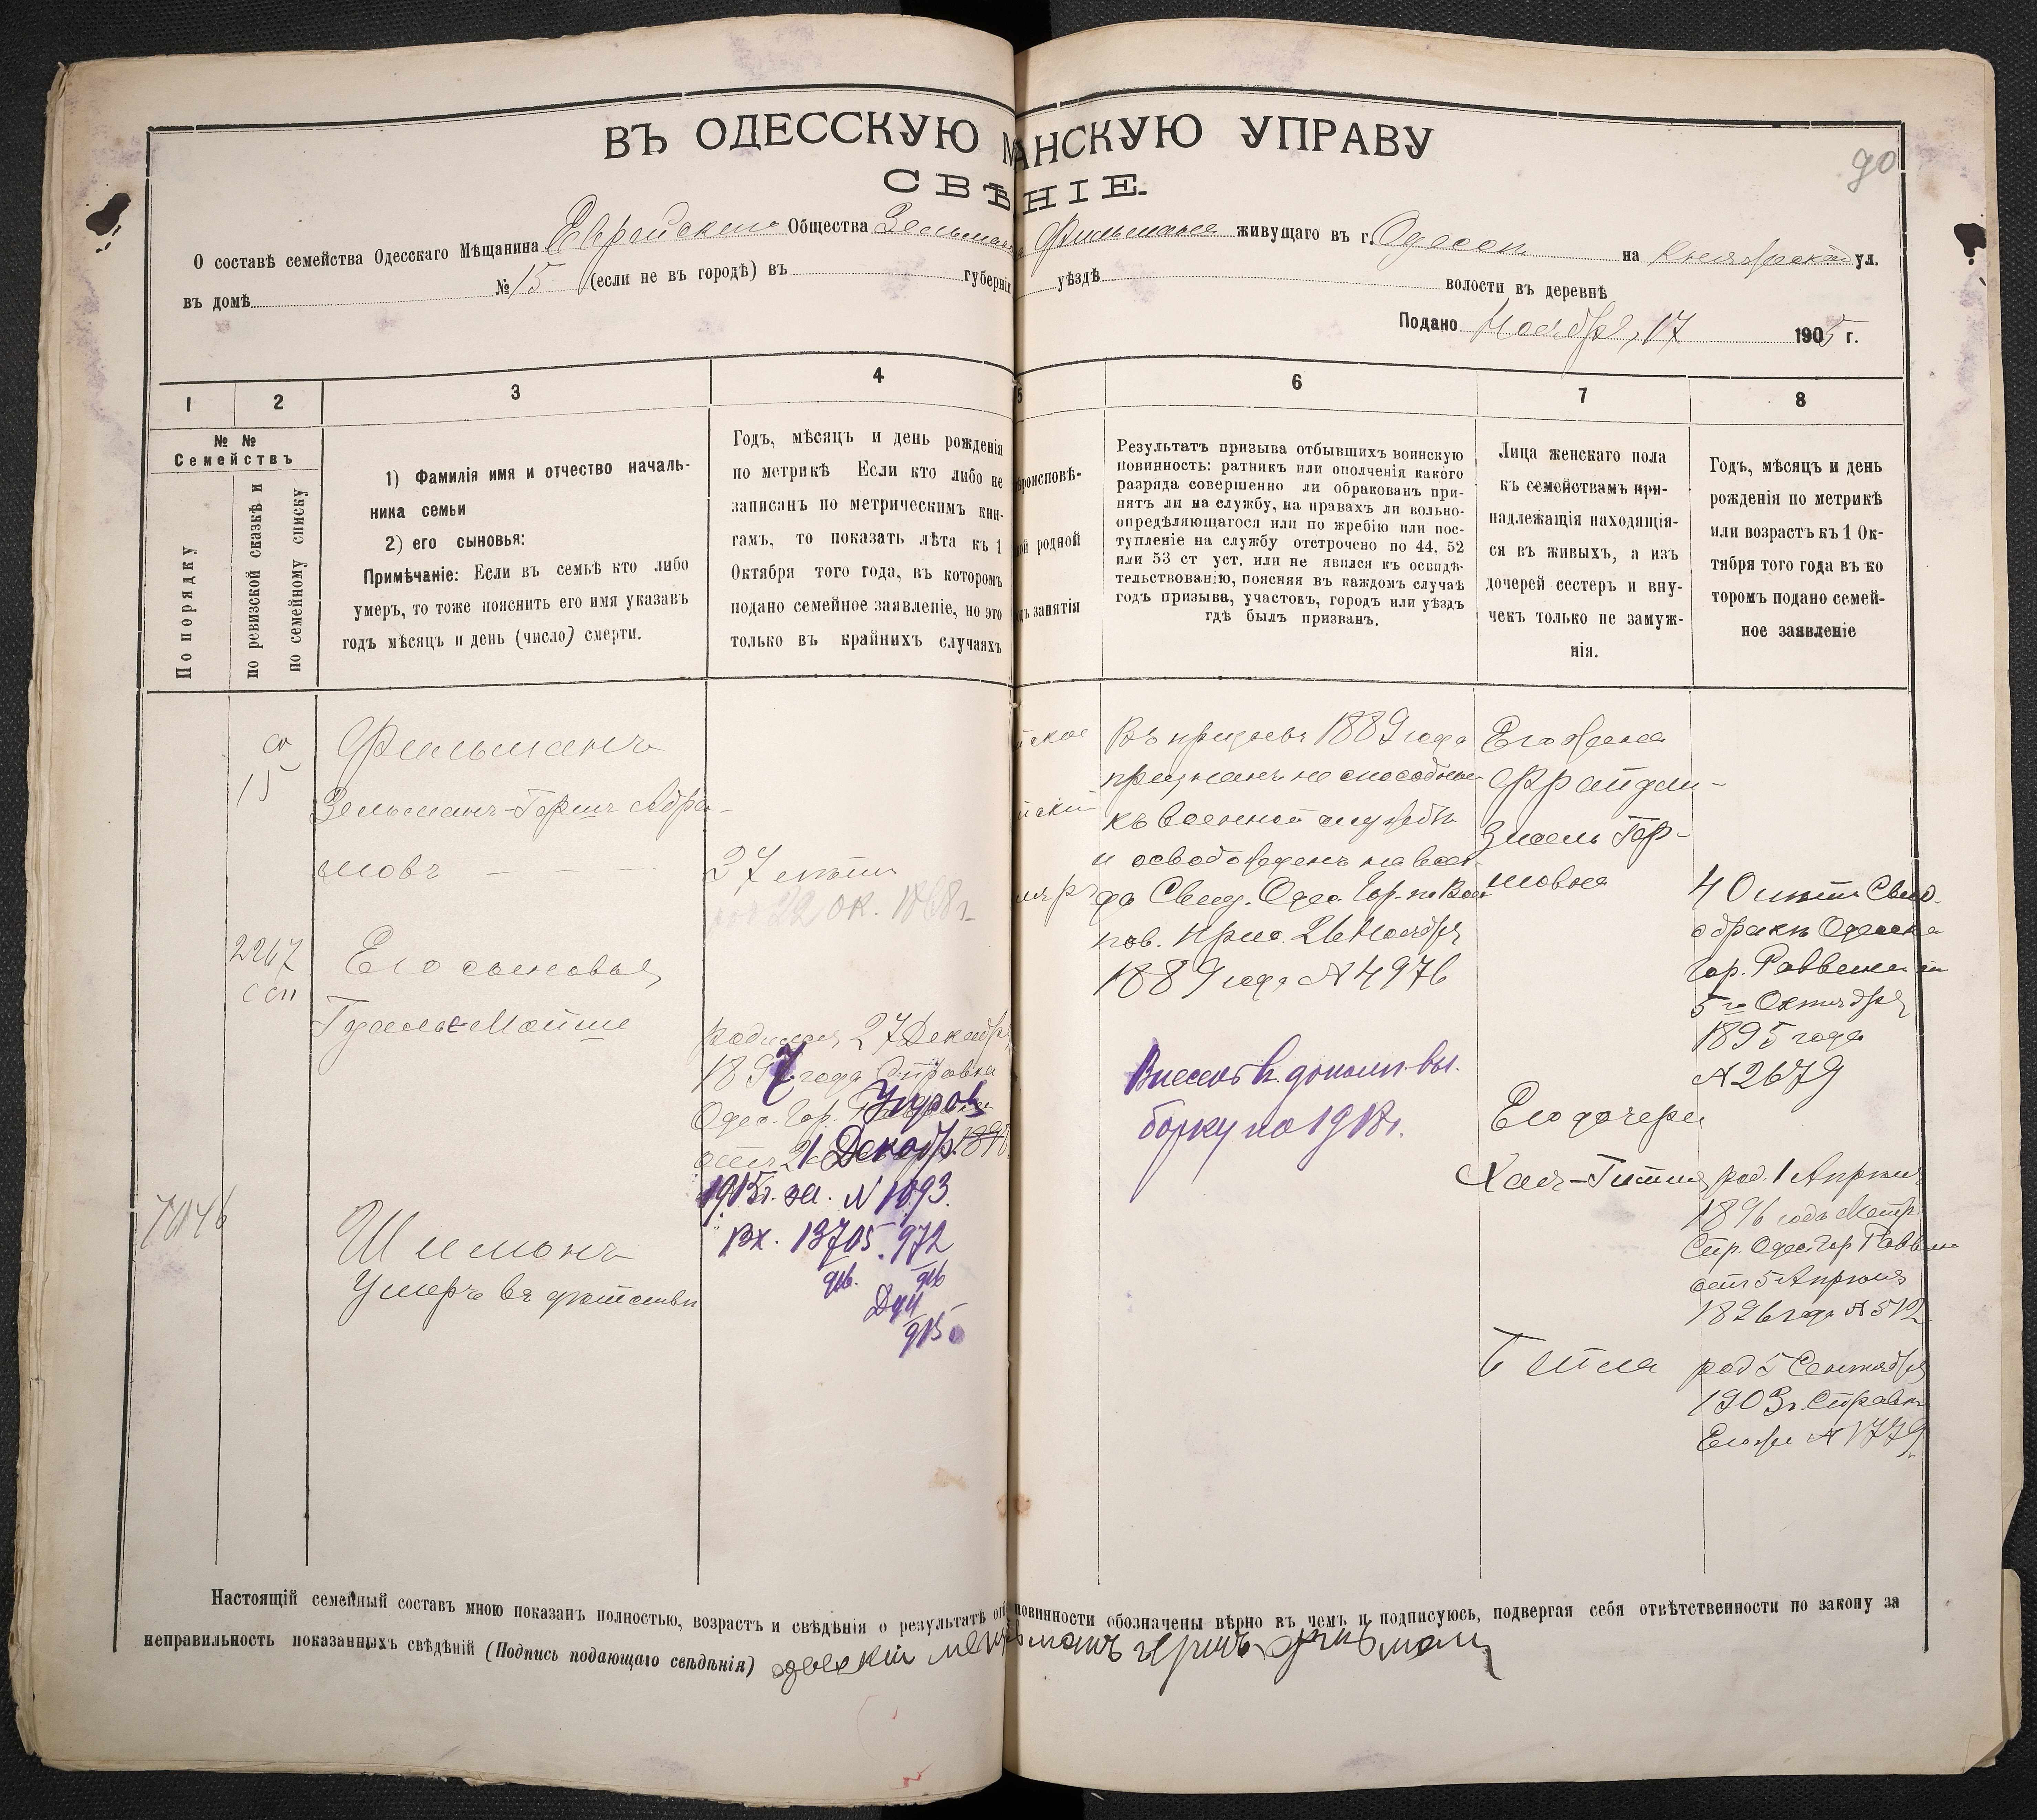 90
ВЪ ОДЕССКУЮ М АНСКУЮ УПРАВУ
СВѢ НІЕ.
О составѣ семейства Одесскаго Мѣщанина Еврейскаго Общества Зельмана Фильмана живущаго въ г. Одессѣ на ул.
въ домѣ № 15 (если не въ городѣ) въ губерніи уѣздѣ волости въ деревнѣ
Подано Ноября, 17 1905 г.
1 2 3 4 5 6 7 8
№ №
Семействъ
По порядку
по ревизской сказкѣ и
по семейному списку
1) Фамилія имя и отчество началь-
ника семьи
2) его сыновья:
Примѣчаніе: Если въ семьѣ кто либо
умеръ, то тоже пояснить его имя указавъ
годъ мѣсяцъ и день (число) смерти.
Годъ, мѣсяцъ и день рожденія
по метрикѣ Если кто либо не
записанъ по метрическимъ кни-
гамъ, то показать лѣта къ 1
Октября того года, въ которомъ
подано семейное заявленіе, но это
только въ крайнихъ случаяхъ
роисповѣ-
ой родной
ъ занятія
Результатъ призыва отбывшихъ воинскую
повинность: ратникъ или ополченія какого
разряда совершенно ли обракованъ при-
нятъ ли на службу, на правахъ ли вольно-
опредѣляющагося или по жребію или пос-
тупленіе на службу отстрочено по 44, 52
или 53 ст уст. или не явился къ освидѣ-
тельствованію, поясняя въ каждомъ случаѣ
годъ призыва, участокъ, городъ или уѣздъ
гдѣ былъ призванъ.
Лица женскаго пола
къ семействамъ при-
надлежащія находящія-
ся въ живыхъ, а изъ
дочерей сестеръ и вну-
чекъ только не замуж-
нія.
Годъ, мѣсяцъ и день
рожденія по метрикѣ
или возрастъ къ 1 Ок-
тября того года въ ко
торомъ подано семей-
ное заявленіе
15
Фильманъ
Зельманъ-Гершъ Абра-
мовъ - - -
37 лѣтъ
22 ок. 1868 г.
2267
Его сыновья
Гдаль-Мойше
родился 27 Декабря
1897 года Справка
Одес. Гор.
21 Декабр.
1915г. за N 1093.
Вх. 13705. 972
915
7046
Шимонъ
Умеръ въ дѣтствѣ
Въ призывѣ 1889 года
признанъ не способнымъ
къ военной службѣ
и освобожденъ навсег-
да Свид. Одес. Гор. по Воин
пов. Прис. 26 Ноября
1889 года № 4976
Внесенъ в дополн. вы-
борку на 1918 г.
Его жена
Фрайда-
Злата Гер-
шовна
40 лѣтъ Свид.
о бракѣ Одесска
Гор. Раввина от
5го Октября
1895 года
№ 2679
Его дочери
Хая-Гитля род. 1 Апрѣля
1896 года Метр.
Спр. Одес. Гор Раввина
отъ 5 Апрѣля
1896 года № 512
Бейла род 5 Сентября
1903 г. Справка
Его же № 1779
Настоящій семейный составъ мною показанъ полностью, возрастъ и свѣдѣнія о результатѣ от повинности обозначены вѣрно въ чемъ и подписуюсь, подвергая себя отвѣтственности по закону за
неправильность показанныхъ свѣдѣній (Подпись подающаго свѣдѣнія) одескій герш фильман